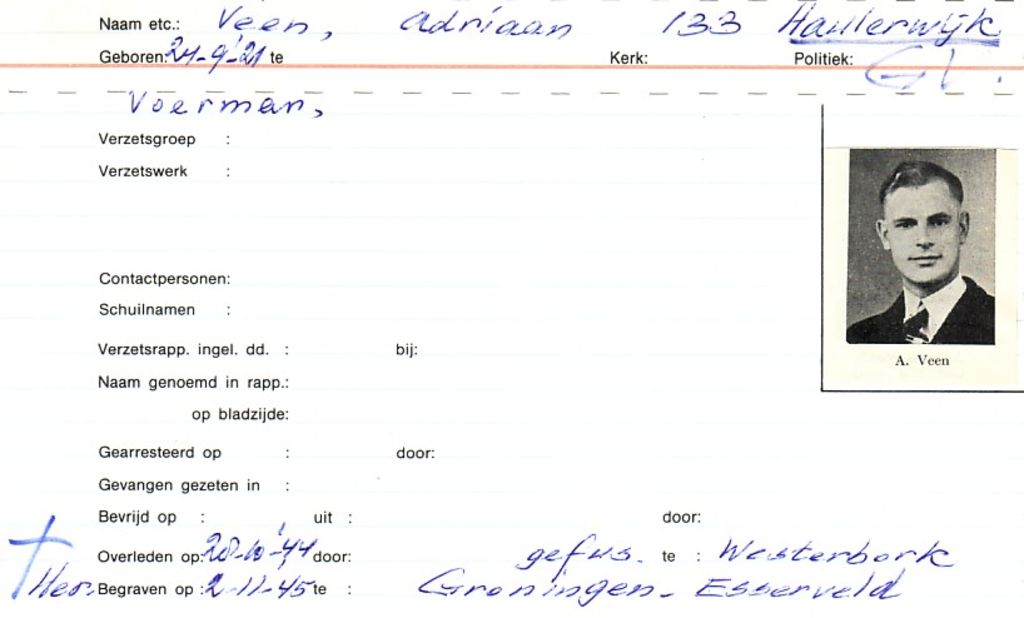 Naam etc.: Veen, Adriaan 133 Haulerwijk
Geboren: 24-9-'21 te Kerk: Politiek:
Voerman,
Verzetsgroep :
Verzetswerk :
Contactpersonen:
Schuilnamen :
Verzetsrapp. ingel. dd. : bij:
Naam genoemd in rapp.:
op bladzijde:
Gearresteerd op : door:
Gevangen gezeten in :
Bevrijd op : uit : door:
Overleden op: 20-10-'44 door: gefus. te : Westerbork
Her. Begraven op : 2-11-45 te : Groningen - Esserveld
A. Veen